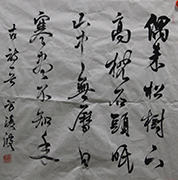 偶来松樹下
高枕石頭眠
山中無曆日
寒尽不知年
古詩一首